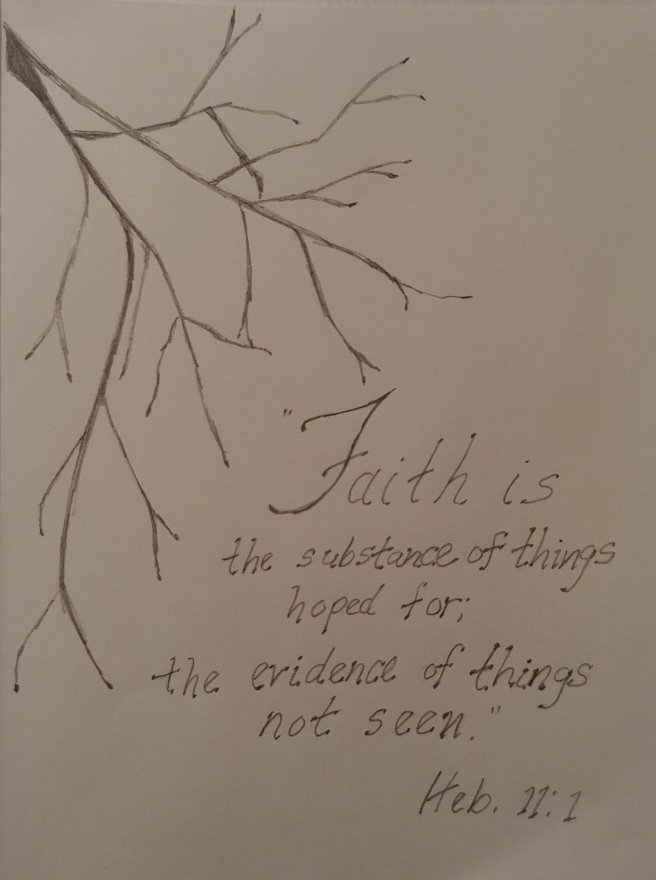 "Faith is
the substance of things
hoped for;
the evidence of things
not seen."
Heb. 11:1